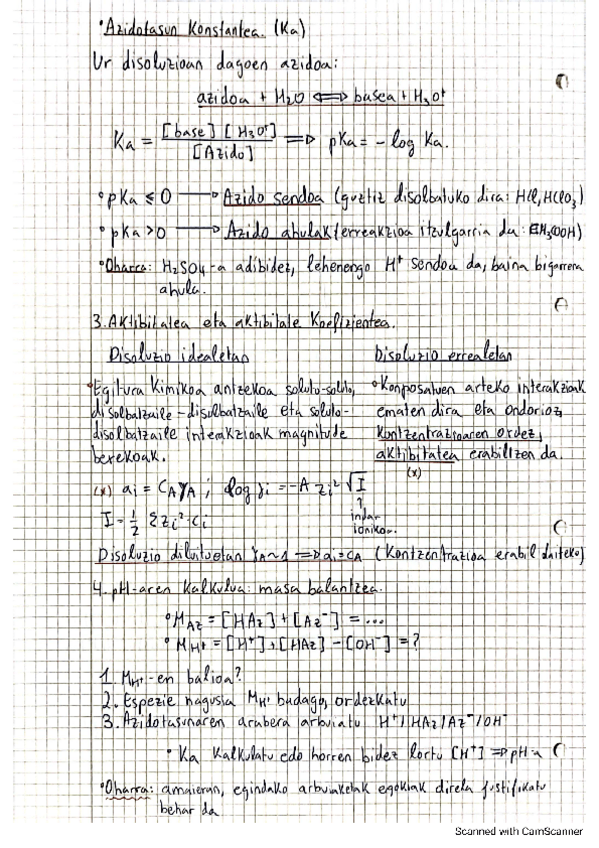 • Azidotasun Konstantea. (Ka)
Ur disoluzioan dagoen azidoa:
azidoa + H2O ⇐⇒ basea + H3O⁺
Ka = [base] [H3O⁺] / [Azido] ⇒ pKa = - log Ka.
• pKa ≤ 0 → Azido sendoa (guztiz disolbatuko dira: HCl, HClO3)
• pKa > 0 → Azido ahulak (erreakzioa itzulgarria da: CH3COOH)
• Oharra: H2SO4-a adibidez, lehenengo H⁺ sendoa da, baina bigarrena
ahula.
3. Aktibitatea eta aktibitate Koefizientea.
Disoluzio idealetan
Disoluzio errealetan
• Egitura Kimikoa antzekoa soluto-soluto,
disolbatzaile-disolbatzaile eta soluto-
disolbatzaile interakzioak magnitude
berekoak.
• Konposatuen arteko interakzioak
ematen dira eta ondorioz,
Kontzentrazioaren ordez,
aktibitatea erabiltzen da.
(x)
(x) ai = CAγA ; log γi = -A zi² √I
↑
indar
ionikoa.
I = 1/2 Σzi²·Ci
Disoluzio diluituetan γA~1 ⇒ ai = CA (Kontzentrazioa erabil daiteke)
4. pH-aren Kalkulua: masa balantzea.
• MAz = [HAz] + [Az⁻] = ...
• MH+ = [H⁺] + [HAz] - [OH⁻] = ?
1. MH+-en balioa?
2. Espezie nagusia MH+ badago, ordezkatu
3. Azidotasunaren arabera arbuiatu H⁺/HAz/Az⁻/OH⁻
• Ka Kalkulatu edo horren bidez lortu [H⁺] ⇒ pH-a
• Oharra: amaieran, egindako arbuiaketak egokiak direla justifikatu
behar da
Scanned with CamScanner